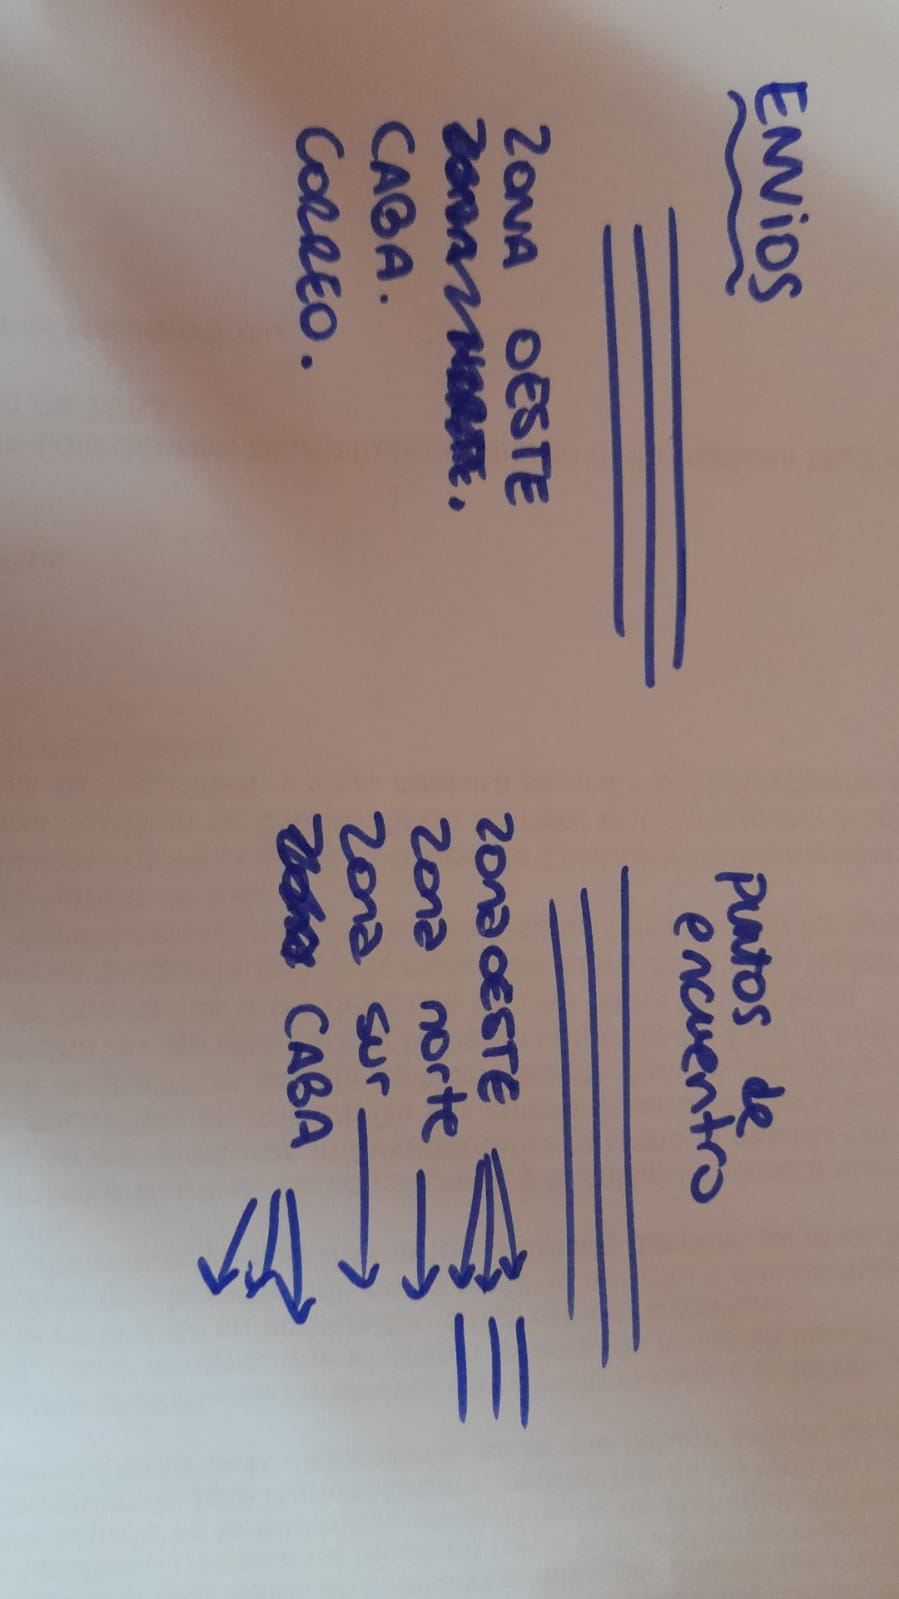 ENVIOS
ZONA OESTE
CABA.
CORREO.
puntos de
encuentro
zona OESTE
zona norte
zona sur
CABA